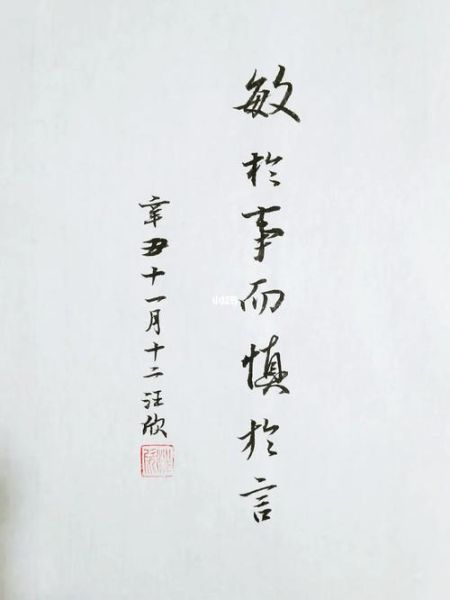 敏於事而慎於言
辛丑十一月十二汪欣